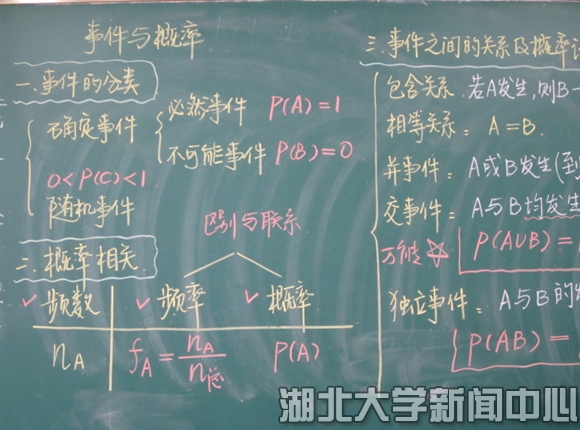 事件与概率
一.事件的分类
确定事件
必然事件 P(A)=1
不可能事件 P(B)=0
0<P(C)<1
随机事件
二.概率相关
区别与联系
✓频数 ✓频率 ✓概率
nA fA=nA/n总 P(A)
三.事件之间的关系及概率
包含关系.若A发生,则B一
相等关系: A=B.
并事件: A或B发生(到
交事件: A与B均发生
万能☆ P(AUB)=
独立事件: A与B的
P(AB)=
湖北大学新闻中心